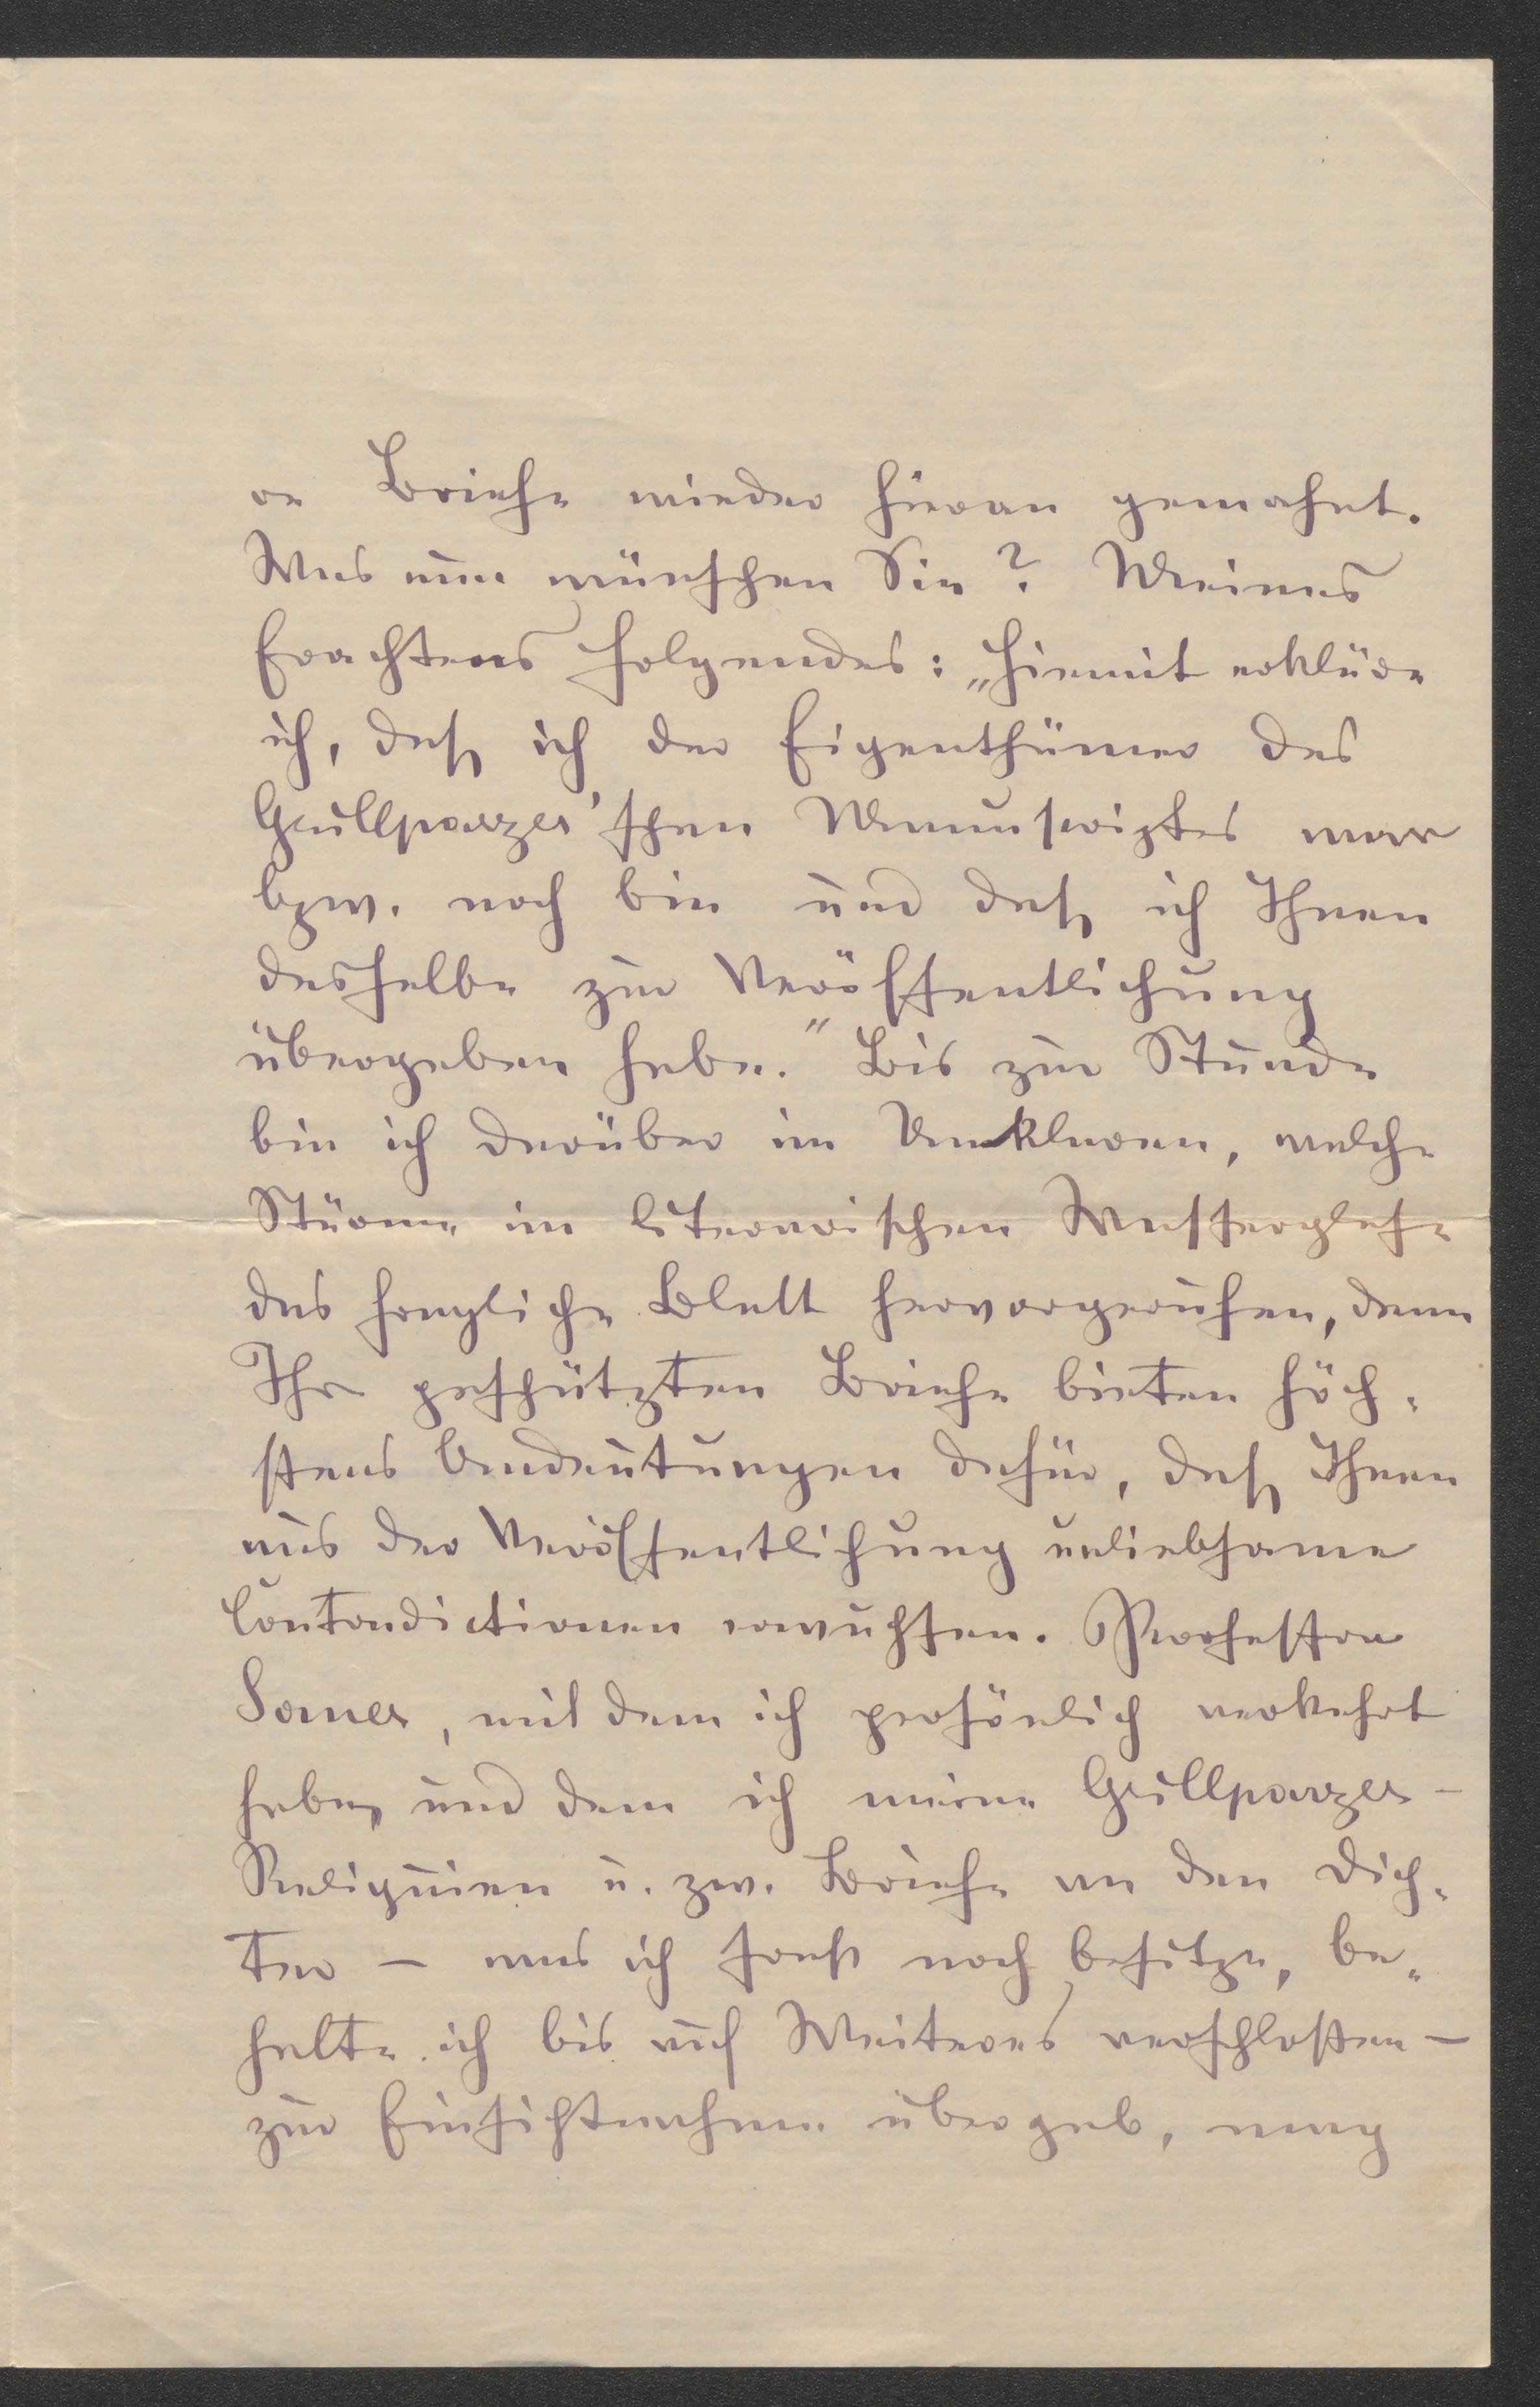 re Briefe wieder hieran gemahnt.
Was nun wünschen Sie? Meines
Erachtens folgendes: „Hiemit erkläre
ich, daß ich der Eigenthümer des
Grillparzer'schen Manuscriptes war
bzw. noch bin und daß ich Ihnen
dasselbe zur Veröffentlichung
übergeben habe." Bis zur Stunde
bin ich darüber im Unklaren, welche
Stürme im literarischen Wasserglase
das fragliche Blatt hervorgerufen, denn
Ihre geschätzten Briefe bieten höch-
stens Andeutungen dafür, daß Ihnen
aus der Veröffentlichung unliebsame
Contradictionen erwuchsen. Professor
Sauer, mit dem ich persönlich verkehrt
habe, und dem ich meine Grillparzer-
Reliquien u. zw. Briefe an den Dich-
ter – was ich sonst noch besitze, be-
halte ich bis auf Weiteres verschlossen –
zur Einsichtnahme übergab, mag